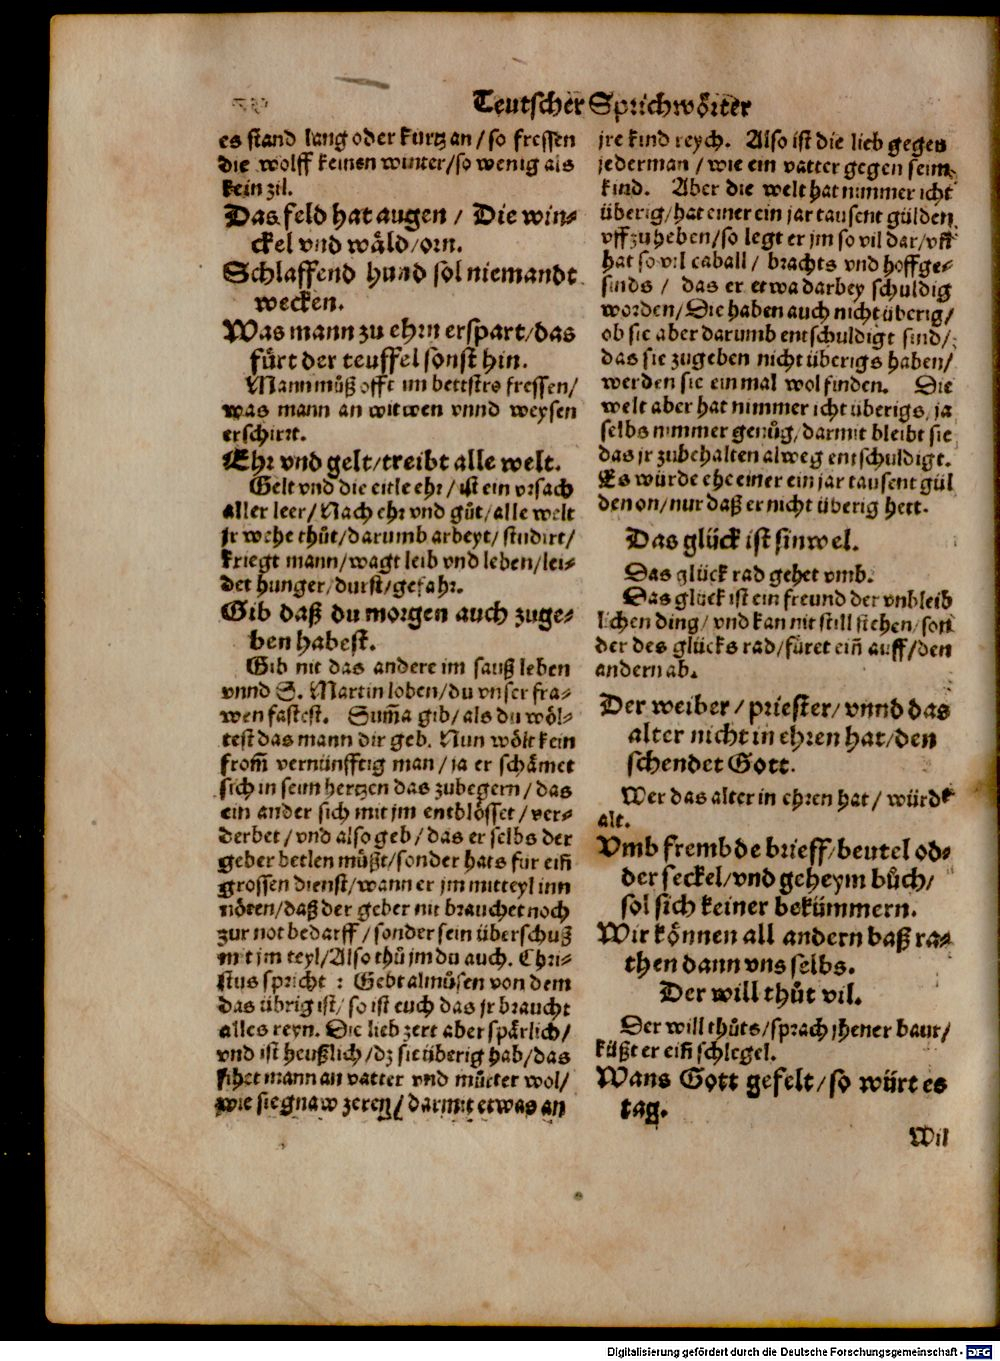 Teutscher Sprichwörter
es stand lang oder kurtz an / so fressen
die wolff keinen winter / so wenig als
kein zil.
Das feld hat augen / Die win⸗
ckel vnd wäld / orn.
Schlaffend hund sol niemandt
wecken.
Was mann zu ehrn erspart / das
fürt der teuffel sonst hin.
Mann můß offt im bettstro fressen /
was mann an witwen vnnd weysen
erschirrt.
Ehr vnd gelt / treibt alle welt.
Gelt vnd die eitle ehr / ist ein vrsach
aller leer / Nach ehr vnd gůt / alle welt
jr wehe thůt / darumb arbeyt / studirt /
kriegt mann / wagt leib vnd leben / lei⸗
det hunger / durst / gefahr.
Gib daß du morgen auch zuge⸗
ben habest.
Gib nit das andere im sauß leben
vnnd S. Martin loben / du vnser fra⸗
wen fastest. Sum̃a gib / als du wöl⸗
test das mann dir geb. Nun wölt kein
from̃ vernünfftig man / ja er schämet
sich in seim hertzen das zubegern / das
ein ander sich mit jm entblösset / ver⸗
derbet / vnd also geb / das er selbs der
geber betlen müßt / sonder hats für eiñ
grossen dienst / wann er jm mitteyl inn
nöten / daß der geber nit brauchet noch
zur not bedarff / sonder sein überschuß
mit jm teyl / Also thů jm du auch. Chri⸗
stus spricht : Gebt almůsen von dem
das übrig ist / so ist euch das jr braucht
alles reyn. Die lieb zert aber spärlich /
vnd ist heußlich / dz sie überig hab / das
sihet mann an vatter vnd můter wol /
wie sie gnaw zeren / darmit etwas an
jre kind reych. Also ist die lieb gegen
jederman / wie ein vatter gegen seim
kind. Aber die welt hat nimmer icht
überig / hat einer ein jar tausent gülden
vff zuheben / so legt er jm so vil dar / vñ
hat so vil caball / brachts vnd hoffge⸗
sinds / das er etwa darbey schuldig
worden / Die haben auch nicht überig /
ob sie aber darumb entschuldigt sind /
das sie zugeben nicht überigs haben /
werden sie ein mal wol finden. Die
welt aber hat nimmer icht überigs, ja
selbs nimmer genůg / darmit bleibt sie
das jr zubehalten alweg entschuldigt.
Es würde ehe einer ein jar tausent gül
den on / nur daß er nicht überig hett.
Das glück ist sinwel.
Das glück rad gehet vmb.
Das glück ist ein freund der vnbleib
lichen ding / vnd kan nit still stehen / son
der des glücks rad / füret eiñ auff / den
andern ab.
Der weiber / priester / vnnd das
alter nicht in ehren hat / den
schendet Gott.
Wer das alter in ehren hat / würde
alt.
Vmb frembde brieff / beutel od⸗
der seckel / vnd geheym bůch /
sol sich keiner bekümmern.
Wir können all andern baß ra⸗
then dann vns selbs.
Der will thůt vil.
Der will thůts / sprach jhener baur /
küßt er eiñ schlegel.
Wans Gott gefelt / so würt es
tag.
Wil
Digitalisierung gefördert durch die Deutsche Forschungsgemeinschaft - DFG